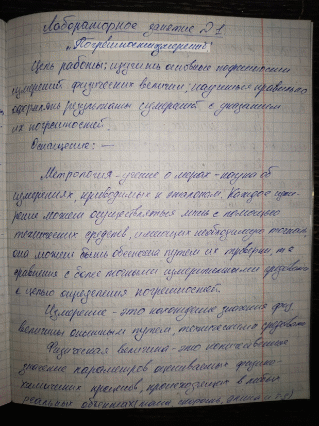 Лабораторное занятие №1
"Погрешности измерений"
Цель работы: изучить основные погрешности
измерений физических величин, научиться правильно
результаты измерений с указанием
их погрешностей.
Оснащение: —
Метрология - учение о мерах - наука об
измерениях, приводимых к эталонам. Каждое изме-
рение может осуществляться лишь с помощью
технических средств, имеющих необходимую точность,
она может быть обеспечена путем их поверки, т.е
сравнения с более точными измерительными средствами
с целью определения погрешностей.
Измерение - это нахождение значения физ.
величины опытным путем средств
Физическая величина - это
значение параметров физико-
химических процессов, происходящих в
реальных объектах (масса, скорость,